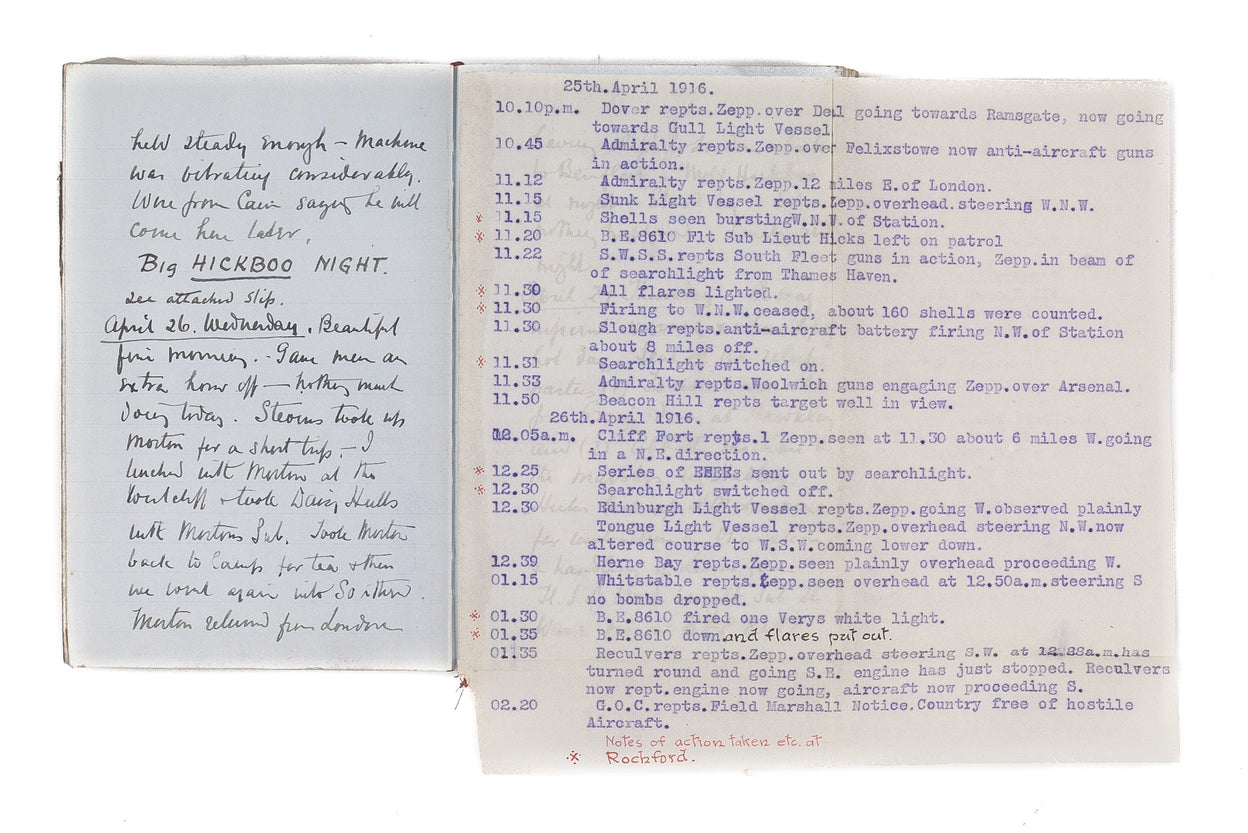 held steady enough - Machine
was vibrating considerably.
Wire from Cain saying he will
come here later.
Big HICKBOO NIGHT.
see attached slip.
April 26. Wednesday. Beautiful
fine morning. Gave men an
extra hour off - nothing much
doing today. Stevens took up
Morton for a short trip - I
lunched with Morton at the
Westcliff & took Daisy Hulls
with Mortons Sub. Took Morton
back to Camp for tea & then
we went again into Southend.
Morton returned from London
25th.April 1916.
10.10p.m. Dover repts.Zepp.over Deal going towards Ramsgate, now going
towards Gull Light Vessel
10.45 Admiralty repts.Zepp.over Felixstowe now anti-aircraft guns
in action.
11.12 Admiralty repts.Zepp.12 miles E.of London.
11.15 Sunk Light Vessel repts.Zepp.overhead.steering W.N.W.
※ 11.15 Shells seen burstingW.N.W.of Station.
※ 11.20 B.E.8610 Flt Sub Lieut Hicks left on patrol
11.22 S.W.S.S.repts South Fleet guns in action, Zepp.in beam of
of searchlight from Thames Haven.
※ 11.30 All flares lighted.
※ 11.30 Firing to W.N.W.ceased, about 160 shells were counted.
11.30 Slough repts.anti-aircraft battery firing N.W.of Station
about 8 miles off.
※ 11.31 Searchlight switched on.
11.33 Admiralty repts.Woolwich guns engaging Zepp.over Arsenal.
11.50 Beacon Hill repts target well in view.
26th.April 1916.
12.05a.m. Cliff Fort repts.1 Zepp.seen at 11.30 about 6 miles W.going
in a N.E.direction.
※ 12.25 Series of EEEEs sent out by searchlight.
※ 12.30 Searchlight switched off.
12.30 Edinburgh Light Vessel repts.Zepp.going W.observed plainly
Tongue Light Vessel repts.Zepp.overhead steering N.W.now
altered course to W.S.W.coming lower down.
12.39 Herne Bay repts.Zepp.seen plainly overhead proceeding W.
01.15 Whitstable repts.Zepp.seen overhead at 12.50a.m.steering S
no bombs dropped.
※ 01.30 B.E.8610 fired one Verys white light.
※ 01.35 B.E.8610 down.and flares put out.
01.35 Reculvers repts.Zepp.overhead steering S.W. at 12.28a.m.has
turned round and going S.E. engine has just stopped. Reculvers
now rept.engine now going, aircraft now proceeding S.
02.20 G.O.C.repts.Field Marshall Notice.Country free of hostile
Aircraft.
Notes of action taken etc. at
※ Rochford.